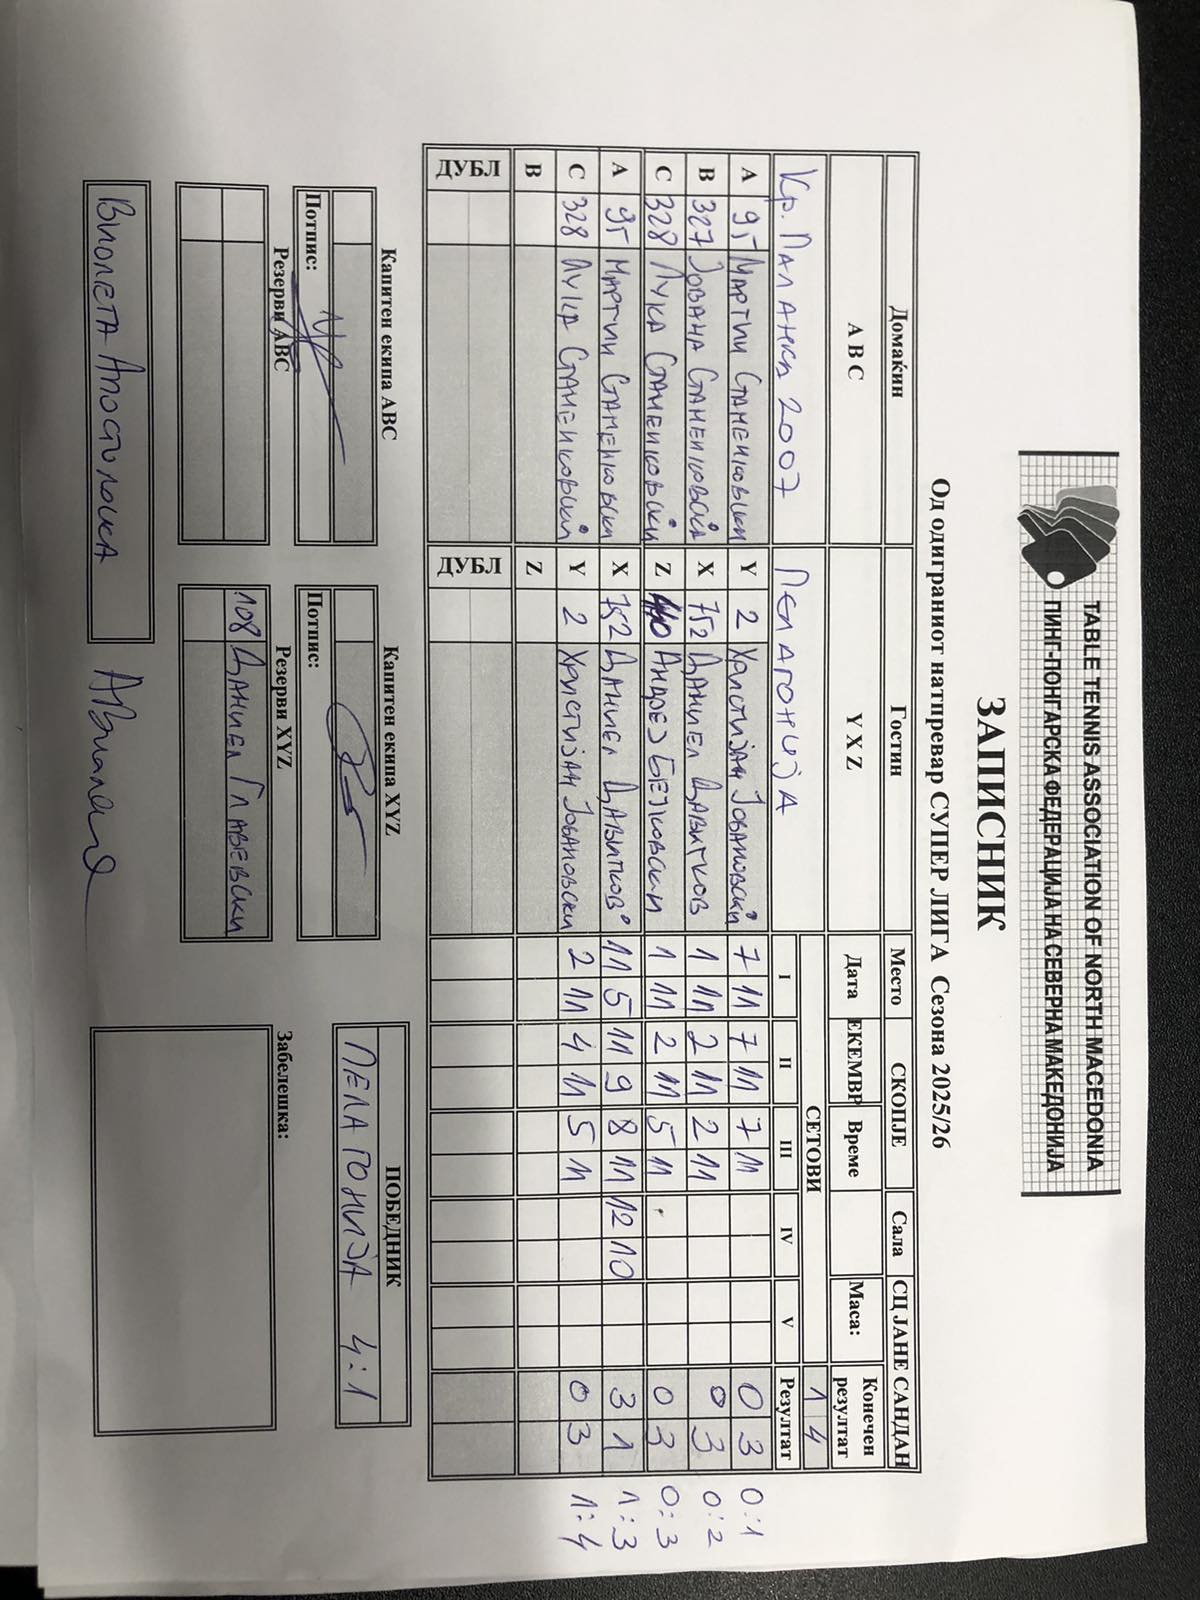 TABLE TENNIS ASSOCIATION OF NORTH MACEDONIA
ПИНГ-ПОНГАРСКА ФЕДЕРАЦИЈА НА СЕВЕРНА МАКЕДОНИЈА
ЗАПИСНИК
Од одиграниот натпревар СУПЕР ЛИГА Сезона 2025/26
Домаќин Гостин Место СКОПЈЕ Сала СЦ ЈАНЕ САНДАН
A B C Y X Z Дата ЕКЕМВР Време Маса: Конечен резултат
Кр. Паланка 2007 Пелагонија СЕТОВИ 1 4
I II III IV V Резултат
A 95 Мартин Стаменковски Y 2 Христијан Јовановски 7 11 7 11 7 11 0 3 0:1
B 327 Јована Стаменковска X 752 Даниел Давитков 1 11 2 11 2 11 0 3 0:2
C 328 Лука Стаменковски Z Андреј Бејковски 1 11 2 11 5 11 0 3 0:3
A 95 Мартин Стаменковски X 752 Даниел Давитков 11 5 11 9 8 11 12 10 3 1 1:3
C 328 Лука Стаменковски Y 2 Христијан Јовановски 2 11 4 11 5 11 0 3 1:4
B Z
ДУБЛ ДУБЛ
Капитен екипа ABC Капитен екипа XYZ ПОБЕДНИК
ПЕЛАГОНИЈА 4:1
Потпис: Потпис:
Резерви ABC Резерви XYZ Забелешка:
108 Даниел Главевски
Виолета Апостолска